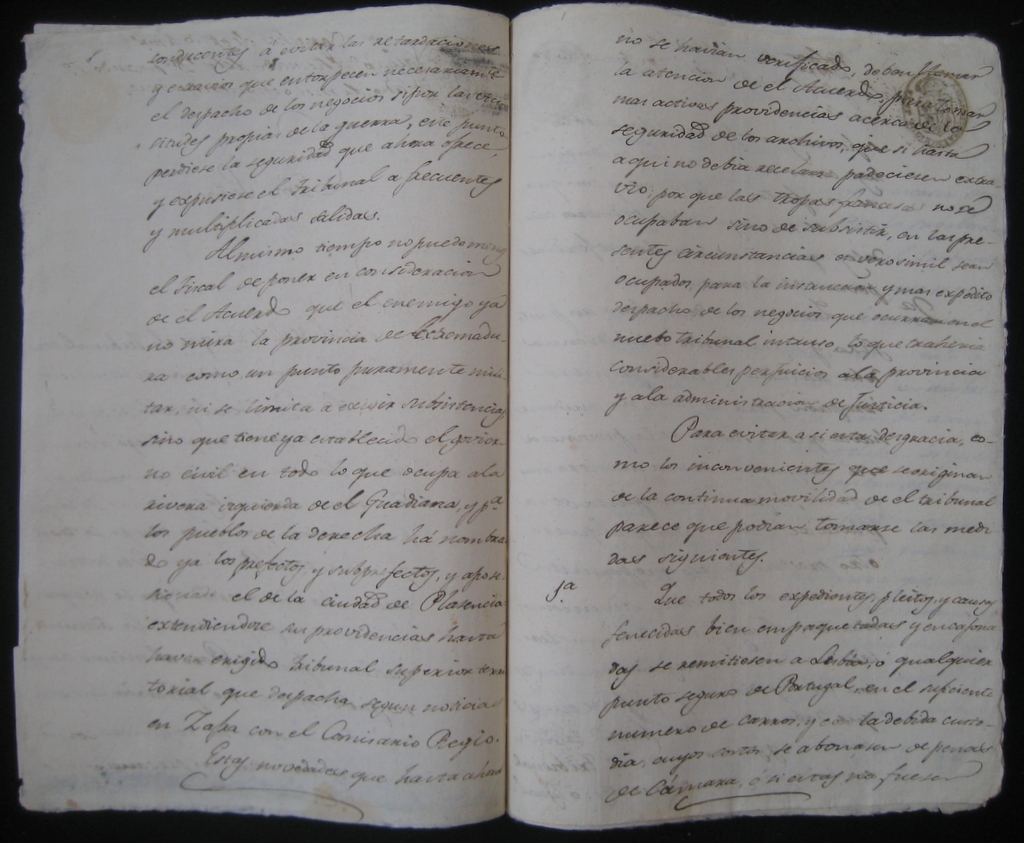 conducentes a evitar las retardaciones
y extravios que entorpecen necesariam.te
el despacho de los negocios si por las vici-
citudes propias de la guerra, este punto
perdiese la seguridad que ahora ofrece,
y expusiese el tribunal a frecuentes
y multiplicadas salidas.
Al mismo tiempo no puede menos
el Fiscal de poner en consideracion
de el Acuerdo que el enemigo ya
no mira la provincia de Extremadu-
ra como un punto puramente mili-
tar, ni se limita a exigir subsistencias
sino que tiene ya establecido el govier-
no civil en todo lo que ocupa a la
rivera izquierda de el Guadiana, y p.a
los pueblos de la derecha há nombra-
do ya los prefectos, y subprefectos, y
el de la ciudad de Plasencia
extendiendose sus providencias hasta
haver erigido tribunal superior terri-
torial que despacha segun noticias
en Zafra con el Comisario Regio.
Estas novedades que hasta ahora
no se havian verificado, deben llamar
la atencion de el Acuerdo, para tomar
mas activas providencias acerca de la
seguridad de los archivos, que si hasta
aqui no debia recelarse padeciesen extra-
vio, por que las tropas no se
ocupaban sino de subsistir, en las pre-
sentes circunstancias es verosimil sean
ocupados, para la instruccion y mas expedito
despacho, de los negocios que ocurran en el
nuebo tribunal intruso, lo que traheria
considerables perjuicios a la provincia
y a la administracion de Justicia.
Para evitar asi esta desgracia, co-
mo los inconvenientes que se originan
de la continua movilidad de el tribunal
parece que podian tomarse las medi-
das siguientes.
1a Que todos los expedientes, pleitos, y causas
fenecidas bien empaquetadas y encajona-
das se remitiesen a Lisboa, ó qualquier
punto seguro de Portugal, en el suficiente
numero de carros, y con la debida custo-
dia, cuyos costos, se abonasen de penas
de Cámara, ó si estas no fuesen